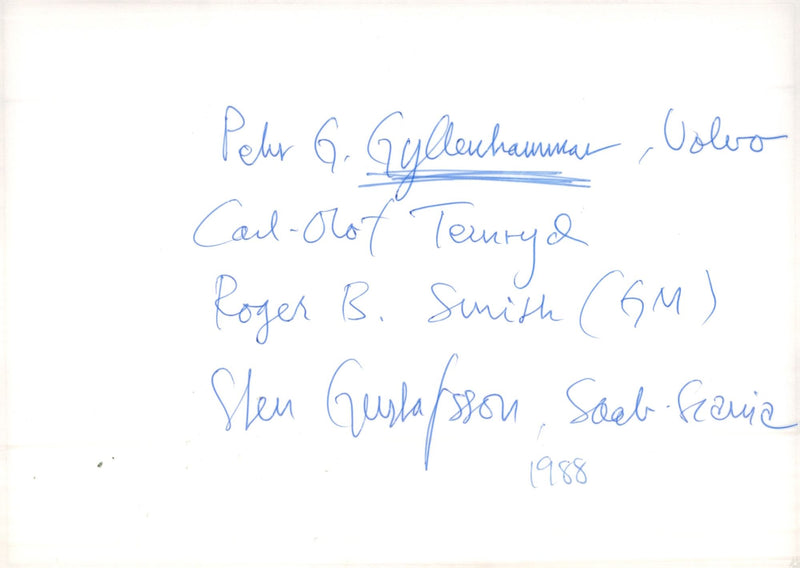 Pehr G. Gyllenhammar, Volvo
Carl-Olof Ternryd
Roger B. Smith (GM)
Sten Gustafsson, Saab-Scania
1988